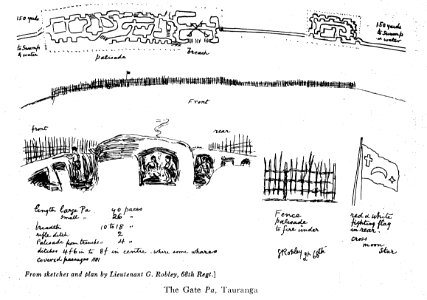 150 yards
to Swamp
& water
palisade
Breach
150 yards
to Swamp
& water
Front
front
rear
length large Pa 40 paces
small " 26 "
breadth 10 to 18 "
rifle ditch 2
Palisade from trenches 4 "
ditches 4 ft 6 in to 8 ft in centre. where some
covered passages
Fence
palisade
to fire under
GRobley 68th
red & white
fighting flag
in rear.
cross
moon
star
From sketches and plan by Lieutenant G. Robley, 68th Regt.]
The Gate Pa, Tauranga